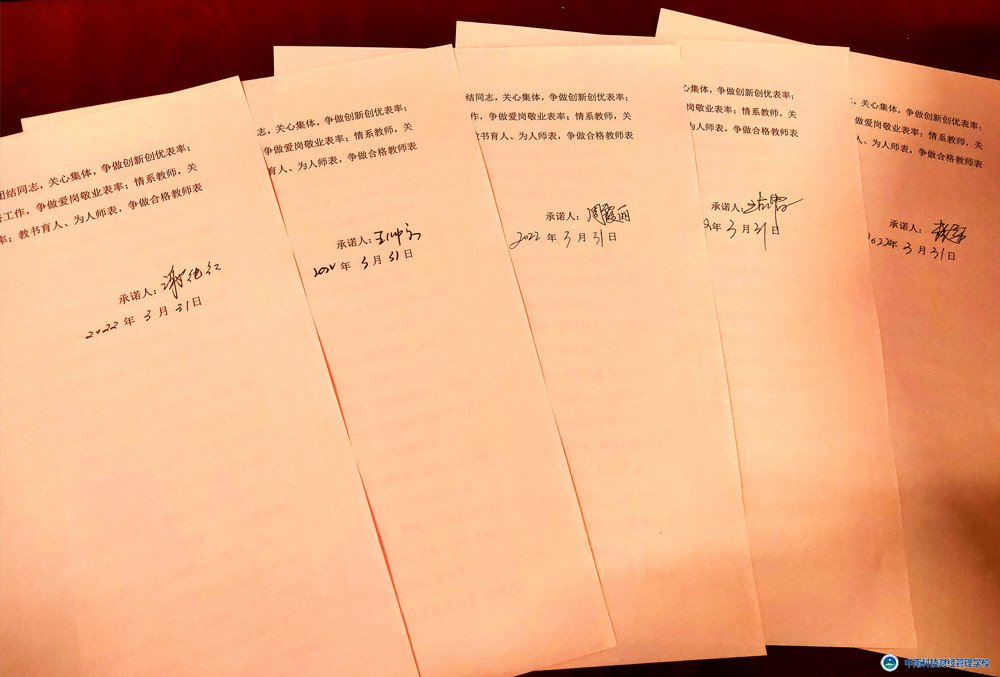 团结同志，关心集体，争做创新创优表率；
工作，争做爱岗敬业表率；情系教师，关
率；教书育人、为人师表，争做合格教师表
承诺人：
2022 年 3 月 31 日
志，关心集体，争做创新创优表率；
争做爱岗敬业表率；情系教师，关
育人、为人师表，争做合格教师表
承诺人：
年 3 月 31 日
结同志，关心集体，争做创新创优表率；
作，争做爱岗敬业表率；情系教师，关
教书育人、为人师表，争做合格教师表
承诺人：周霞丽
2022 年 3 月 31 日
心集体，争做创新创优表率；
爱岗敬业表率；情系教师，关
为人师表，争做合格教师表
承诺人：
年 3 月 31 日
，关心集体，争做创新创优表率；
争做爱岗敬业表率；情系教师，关
人、为人师表，争做合格教师表
承诺人：
2022 年 3 月 31 日